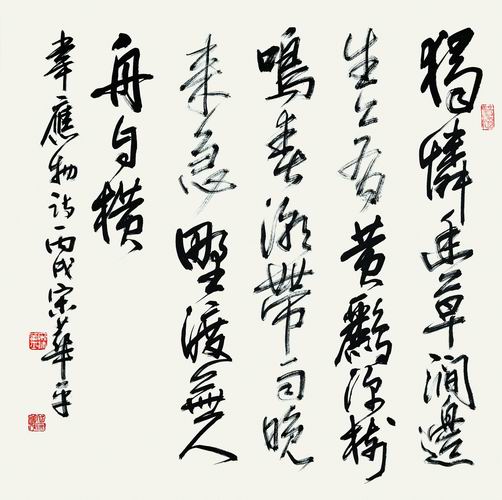 獨憐幽草澗邊
生上有黄鸝深樹
鳴春潮帶雨晚
来急野渡無人
舟自横
韋應物詩丙戌宋華平